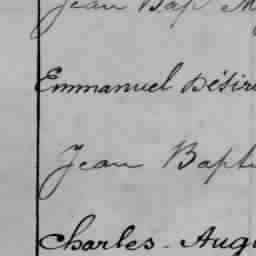 Jean Bap
Emmanuel Désiré
Jean Bapt
Charles - Augu